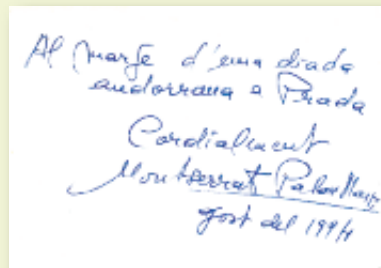 Al marge d'una diada
andorrana a Prada
Cordialment
Montserrat Palau Martí
gost del 1994